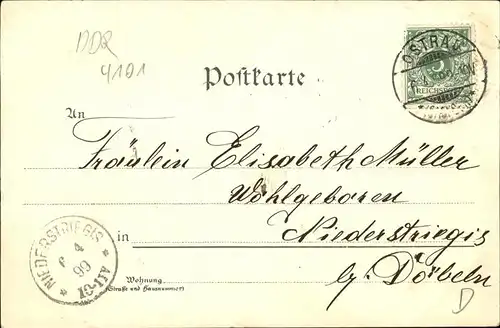 DDR
4101
OSTRAU
5
REICHSPOST
Postkarte
An
Fräulein Elisabeth Müller
Wohlgeboren
in Niederstriegis
b/ Döbeln
Wohnung
(Straße und Hausnummer)
NIEDERSTRIEGIS
6 4
99
D